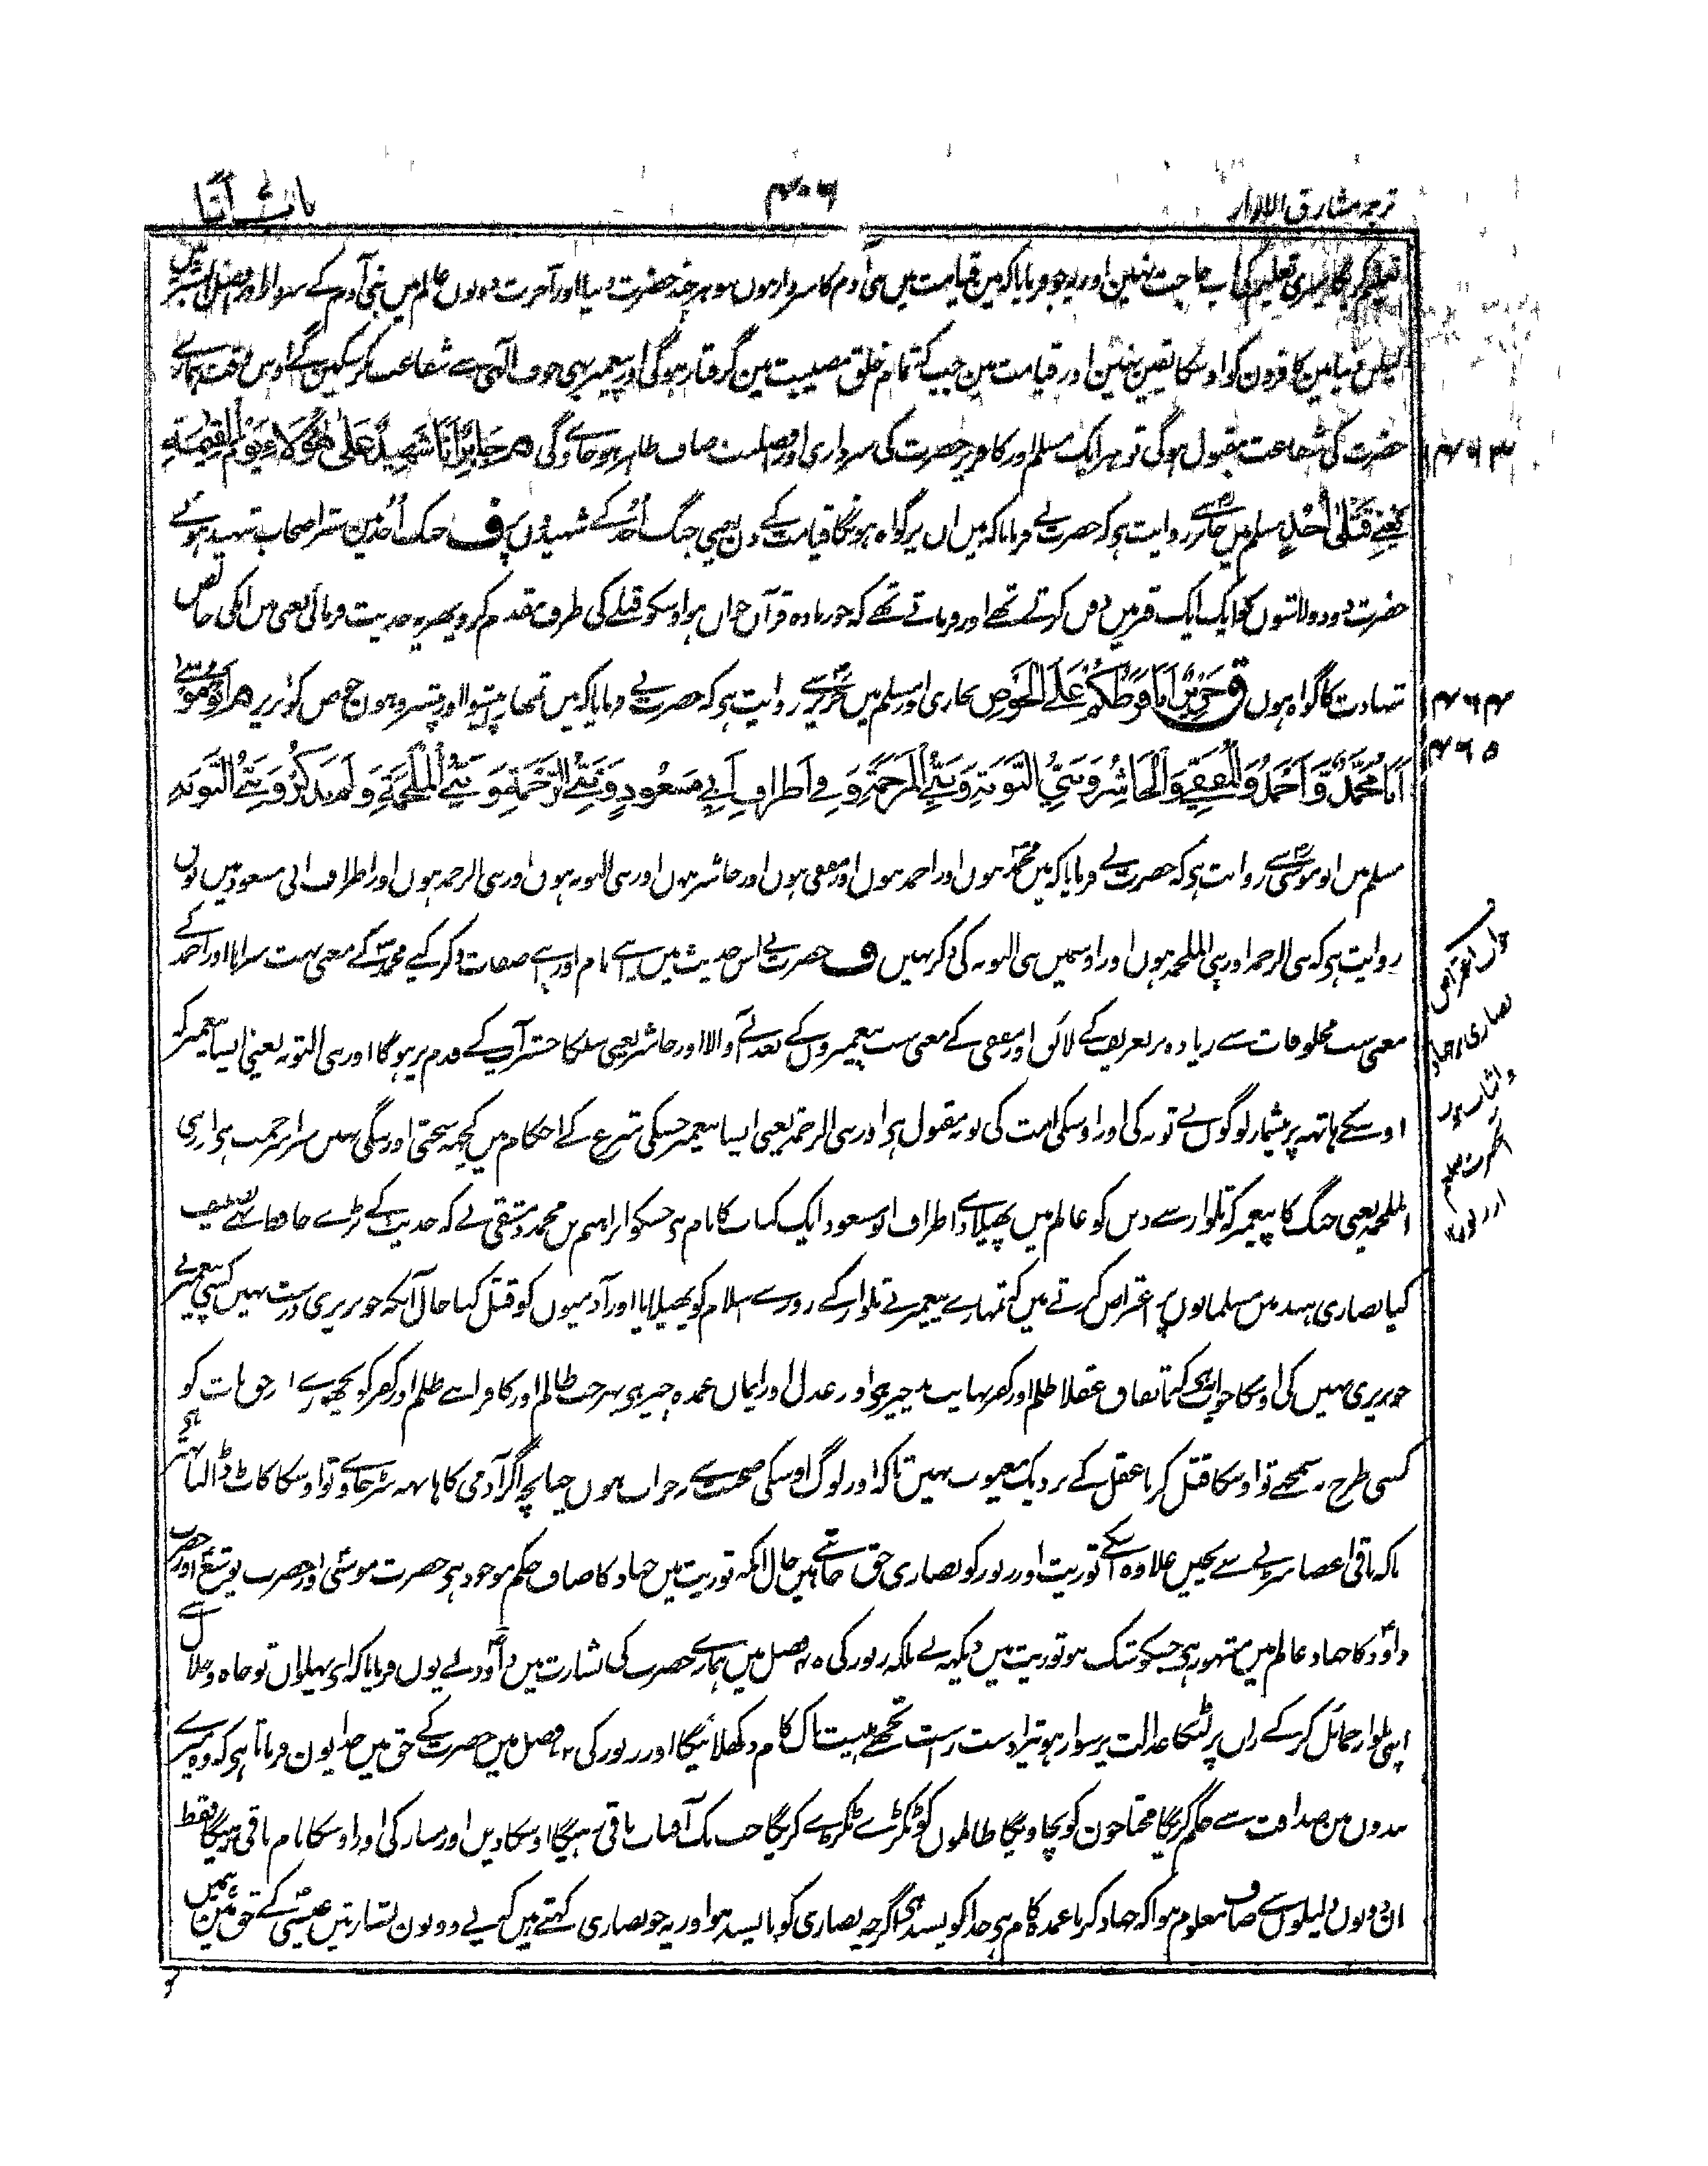 ترجمہ مشارق الانوار
۴۰۶
باب انا
تعلیم کریگا میری تعلیم کی اب حاجت نہین اور یہ جو فرمایا کہ مین قیامت میں بنی آدم کا سردار ہوں سو ہر چند حضرت دنیا اور آخرت دونوں عالم میں بنی آدم کے سردار اور افضل البشر ہیں
لیکن دنیا مین کافرون کو اوسکا یقین نہین اور قیامت مین جب کہ تمام خلق مصیبت مین گرفتار ہوگی اور پیغمبر بھی خوف الٰہی سے شفاعت نکر سکیں گے اوس وقت ہمارے
حضرت کی شفاعت مقبول ہوگی تو ہر ایک مسلم اور کافر پر حضرت کی سرداری اور فضیلت صاف ظاہر ہو جاوے گی م جَابِرٌ اَنَا شَهِيدٌ عَلٰى هٰؤُلَاءِ يَوْمَ الْقِيٰمَةِ
۱۴۶۳
يَعْنِي قَتْلٰى اُحُدٍ مسلم میں جابر رض سے روایت ہی کہ حضرت نے فرمایا کہ میں ان پر گواہ ہونگا قیامت کے دن یعنی جنگ اُحُد کے شہیدوں پر ف جنگ اُحُد مین ستر اصحاب شہید ہوئے
حضرت دو دو لاشوں کو ایک ایک قبر میں دفن کرتے تھے اور فرماتے تھے کہ جو زیادہ قرآن خواں ہو اوسکو قبلے کی طرف مقدم کرو پھر یہ حدیث فرمائی یعنی میں انکی خاص
شہادت کا گواہ ہوں ق جُنْدُبٌ اَنَا فَرَطُكُمْ عَلَى الْحَوْضِ بخاری اور مسلم میں جندب رض سے روایت ہی کہ حضرت نے فرمایا کہ میں تمھارا پیشوا اور پیشرو ہون حوض کوثر پر م اَبُو مُوسٰى
۱۴۶۴
۱۴۶۵
اَنَا مُحَمَّدٌ وَاَحْمَدُ وَالْمُقَفِّي وَالْحَاشِرُ وَنَبِيُّ التَّوْبَةِ وَنَبِيُّ الْمَرْحَمَةِ وَفِي اَطْرَافِ اَبِي مَسْعُودٍ وَنَبِيُّ الرَّحْمَةِ وَنَبِيُّ الْمَلْحَمَةِ وَلَمْ يَذْكُرْ وَنَبِيُّ التَّوْبَةِ
مسلم میں ابو موسی رض سے روایت ہی کہ حضرت نے فرمایا کہ میں محمد ہوں اور احمد ہوں اور مقفی ہوں اور حاشر ہوں اور نبی التوبہ ہوں اور نبی الرحمہ ہوں اور اطراف ابی مسعود میں یوں
روایت ہی کہ نبی الرحمہ اور نبی الملحمہ ہوں اور اوسمیں نبی التوبہ کی ذکر نہیں ف حضرت نے اس حدیث میں اپنے نام اور اپنے صفات ذکر کیے محمد کے معنی بہت سراہا اور احمد کے
معنی سب مخلوقات سے زیادہ تر تعریف کے لائق اور مقفی کے معنی سب پیغمبروں کے بعد آنے والا اور حاشر یعنی سب کا حشر آپ کے قدم پر ہوگا اور نبی التوبہ یعنی ایسا پیغمبر کہ
اوسکے ہاتھ پر بیشمار لوگوں نے توبہ کی اور اوسکی امت کی توبہ مقبول ہی اور نبی الرحمہ یعنی ایسا پیغمبر جسکی شرع کے احکام میں کچھ سختی اور تنگی نہیں سراسر رحمت ہی اور نبی
الملحمہ یعنی جنگ کا پیغمبر کہ تلوار سے دین کو عالم میں پھیلاوے اطراف ابو مسعود ایک کتاب کا نام ہی جسکو ابراہیم بن محمد دمشقی نے کہ حدیث کے بڑے حافظ تھے تصنیف
کیا نصاری ہند میں مسلمانوں پر اعتراض کرتے ہیں کہ تمہارے پیغمبر نے تلوار کے زور سے اسلام کو پھیلایا اور آدمیوں کو قتل کیا حال آنکہ خونریزی درست نہیں کسی پیغمبر نے
خونریزی نہیں کی اوسکا جواب یہ ہی کہ باتفاق عقلا ظلم اور کفر نہایت بد چیز ہی اور عدل اور ایمان عمدہ چیز ہی پھر جب ظالم اور کافر اپنے ظلم اور کفر کو نچھوڑے اور حق بات کو
کسی طرح نہ سمجھے تو اوسکا قتل کرنا عقل کے نزدیک معیوب نہیں تا کہ اور لوگ اوسکی صحبت سے خراب نہوں چنانچہ اگر آدمی کا ہاتھ سڑ جاوے تو اوسکا کاٹ ڈالنا بہتر ہی
تا کہ باقی اعضا سڑنے سے بچیں علاوہ اسکے توریت اور زبور کو نصاری حق جانتے ہیں حال آنکہ توریت میں جہاد کا صاف حکم موجود ہی حضرت موسی اور حضرت یوشع اور حضرت
داؤد کا جہاد عالم میں مشہور ہی جسکو شک ہو توریت میں دیکھ لے بلکہ زبور کی ۴۵ فصل میں ہمارے حضرت کی بشارت میں داؤد نے یوں فرمایا کہ ای پہلوان تو جاہ و جلال سے
اپنی تلوار حمائل کر کے ران پر لٹکا عدالت پر سوار ہو تیرا دست راست تجھے ہیبت ناک کام دکھلائیگا اور زبور کی فصل میں حضرت کے حق میں خدا یون فرماتا ہی کہ وہ میرے
بندوں میں صداقت سے حکم کریگا محتاجون کو بچاویگا ظالموں کو ٹکڑے ٹکڑے کریگا جب تک آفتاب باقی رہیگا اوسکا دین اور مبارکی اور اوسکا نام باقی رہیگا فقط
ان دونوں دلیلوں سے صاف معلوم ہوا کہ جہاد کرنا عمدہ کام ہی خدا کو پسند ہی اگرچہ نصاری کو ناپسند ہو اور یہ جو نصاری کہتے ہیں کہ یے دونون بشارتیں عیسی کے حق مین ہیں
جواب اعتراض
نصاری